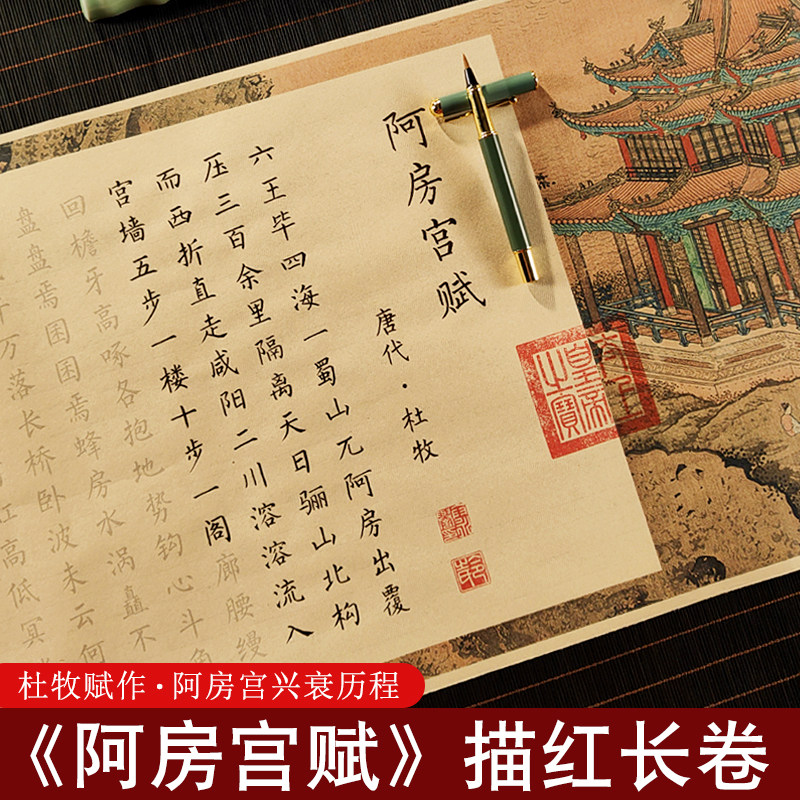 阿房宫赋
唐代·杜牧
六王毕四海一蜀山兀阿房出覆
压三百余里隔离天日骊山北构
而西折直走咸阳二川溶溶流入
宫墙五步一楼十步一阁廊腰缦
回檐牙高啄各抱地势钩心斗角
盘盘焉囷囷焉蜂房水涡矗不
千万落长桥卧波未云何
高低冥
皇帝之寶
杜牧赋作·阿房宫兴衰历程
《阿房宫赋》描红长卷